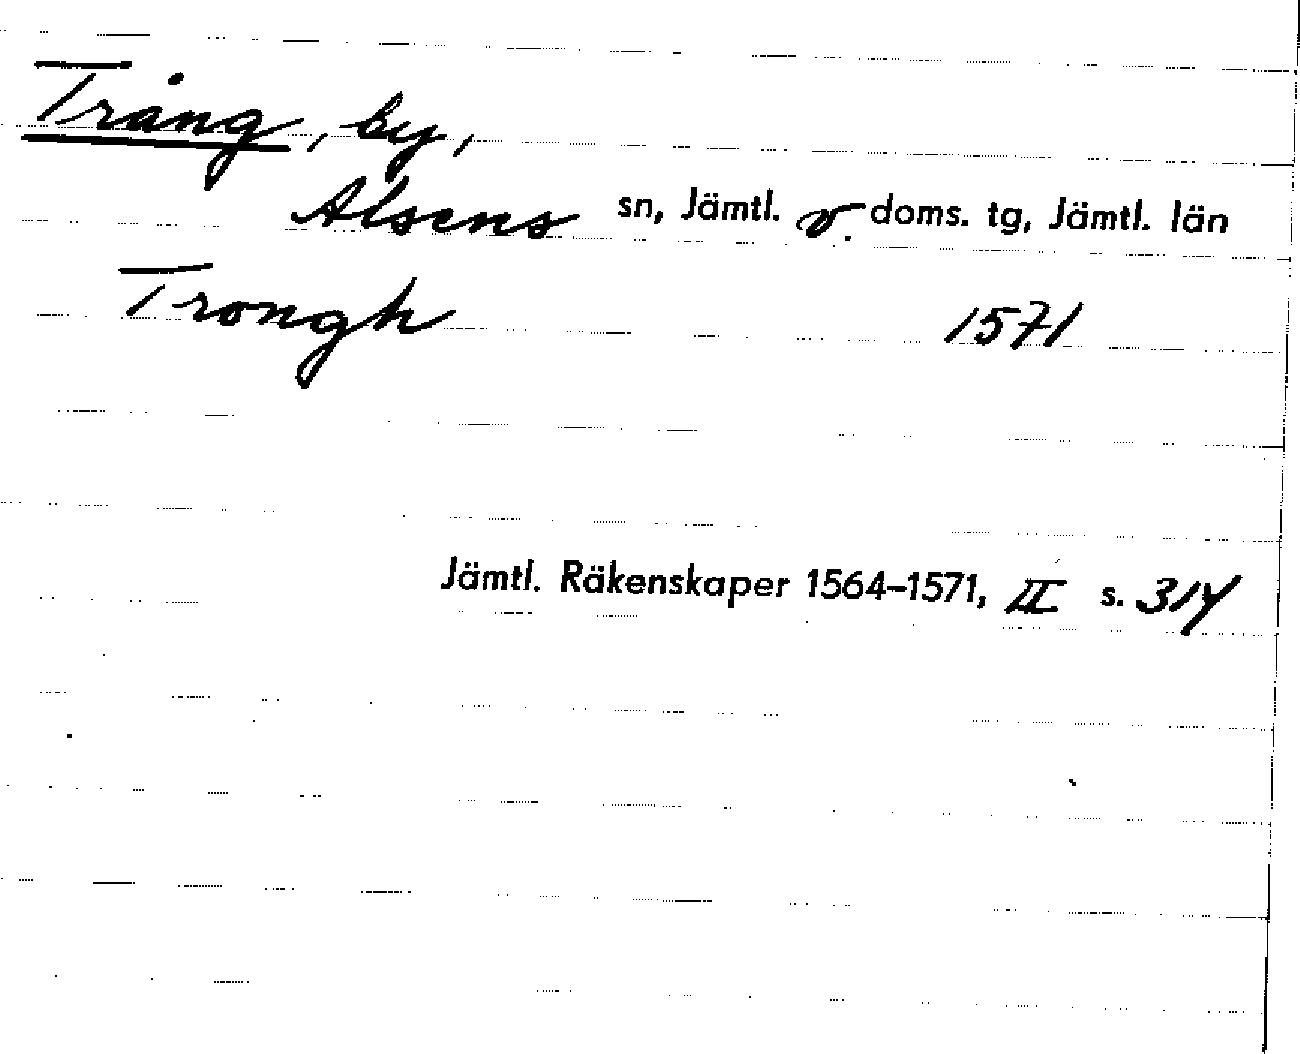 Trång, by,
Alsens sn, Jämtl. v. doms. tg, Jämtl. län
Trongh 1571
Jämtl. Räkenskaper 1564–1571, II s. 314